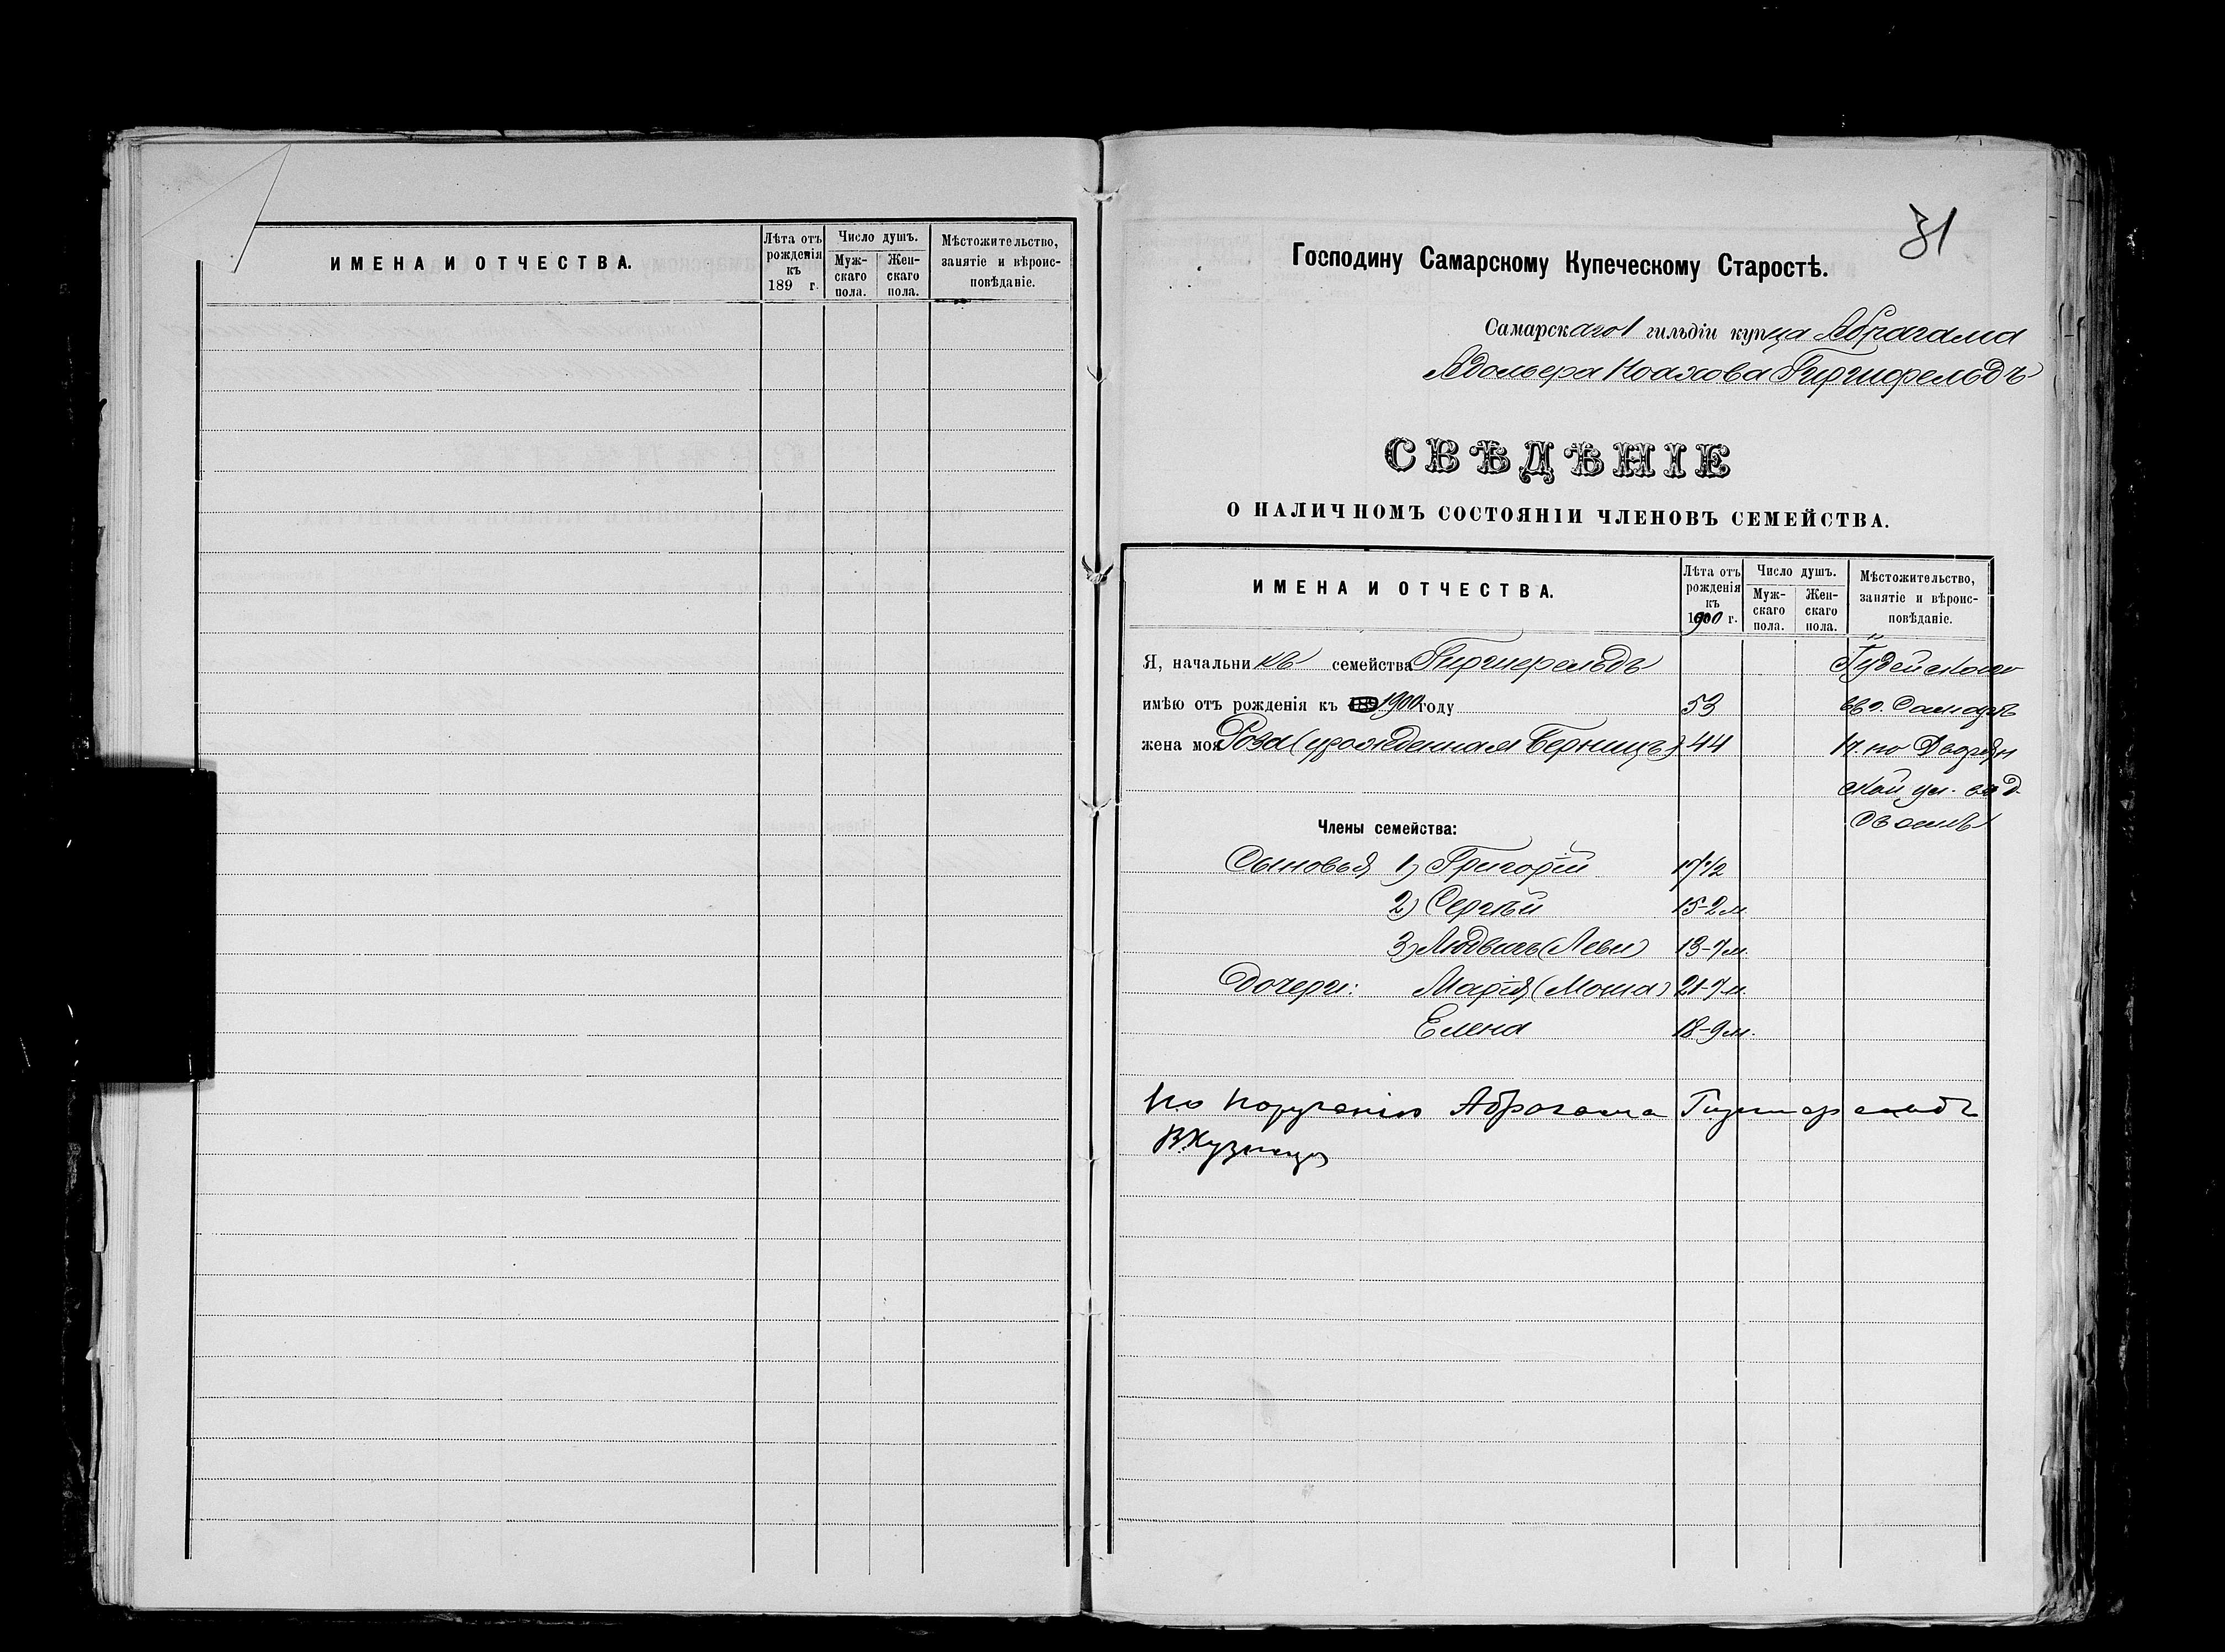 ИМЕНА И ОТЧЕСТВА.
Лѣта отъ рожденія къ 189 г.
Число душъ.
Мужскаго пола.
Женскаго пола.
Мѣстожительство, занятіе и вѣроисповѣданіе.
31
Господину Самарскому Купеческому Старостѣ.
Самарскаго 1 гильдіи купца Абрагама
Адольфа Ноахова Гиршфельдъ
СВѢДѢНІЕ
О НАЛИЧНОМЪ СОСТОЯНІИ ЧЛЕНОВЪ СЕМЕЙСТВА.
ИМЕНА И ОТЧЕСТВА.
Лѣта отъ рожденія къ 1900 г.
Число душъ.
Мужскаго пола.
Женскаго пола.
Мѣстожительство, занятіе и вѣроисповѣданіе.
Я, начальникъ семейства Гиршфельдъ Іудейскаго
имѣю отъ рожденія къ 189 1900 году 53 въ г. Самарѣ
жена моя Роза (урожденная Берницъ) 44 по Дворян
ской ул. въ д.
Своемъ
Члены семейства:
Сыновья 1) Григорій 17 1/2
2) Сергѣй 15-2 м.
3) Людвигъ (Леви) 13-7 м.
Дочери: Марія (Мона) 21-7 м.
Елена 18-9 м.
По порученію Абрагама Гиршфельдъ
В. Кузнецов